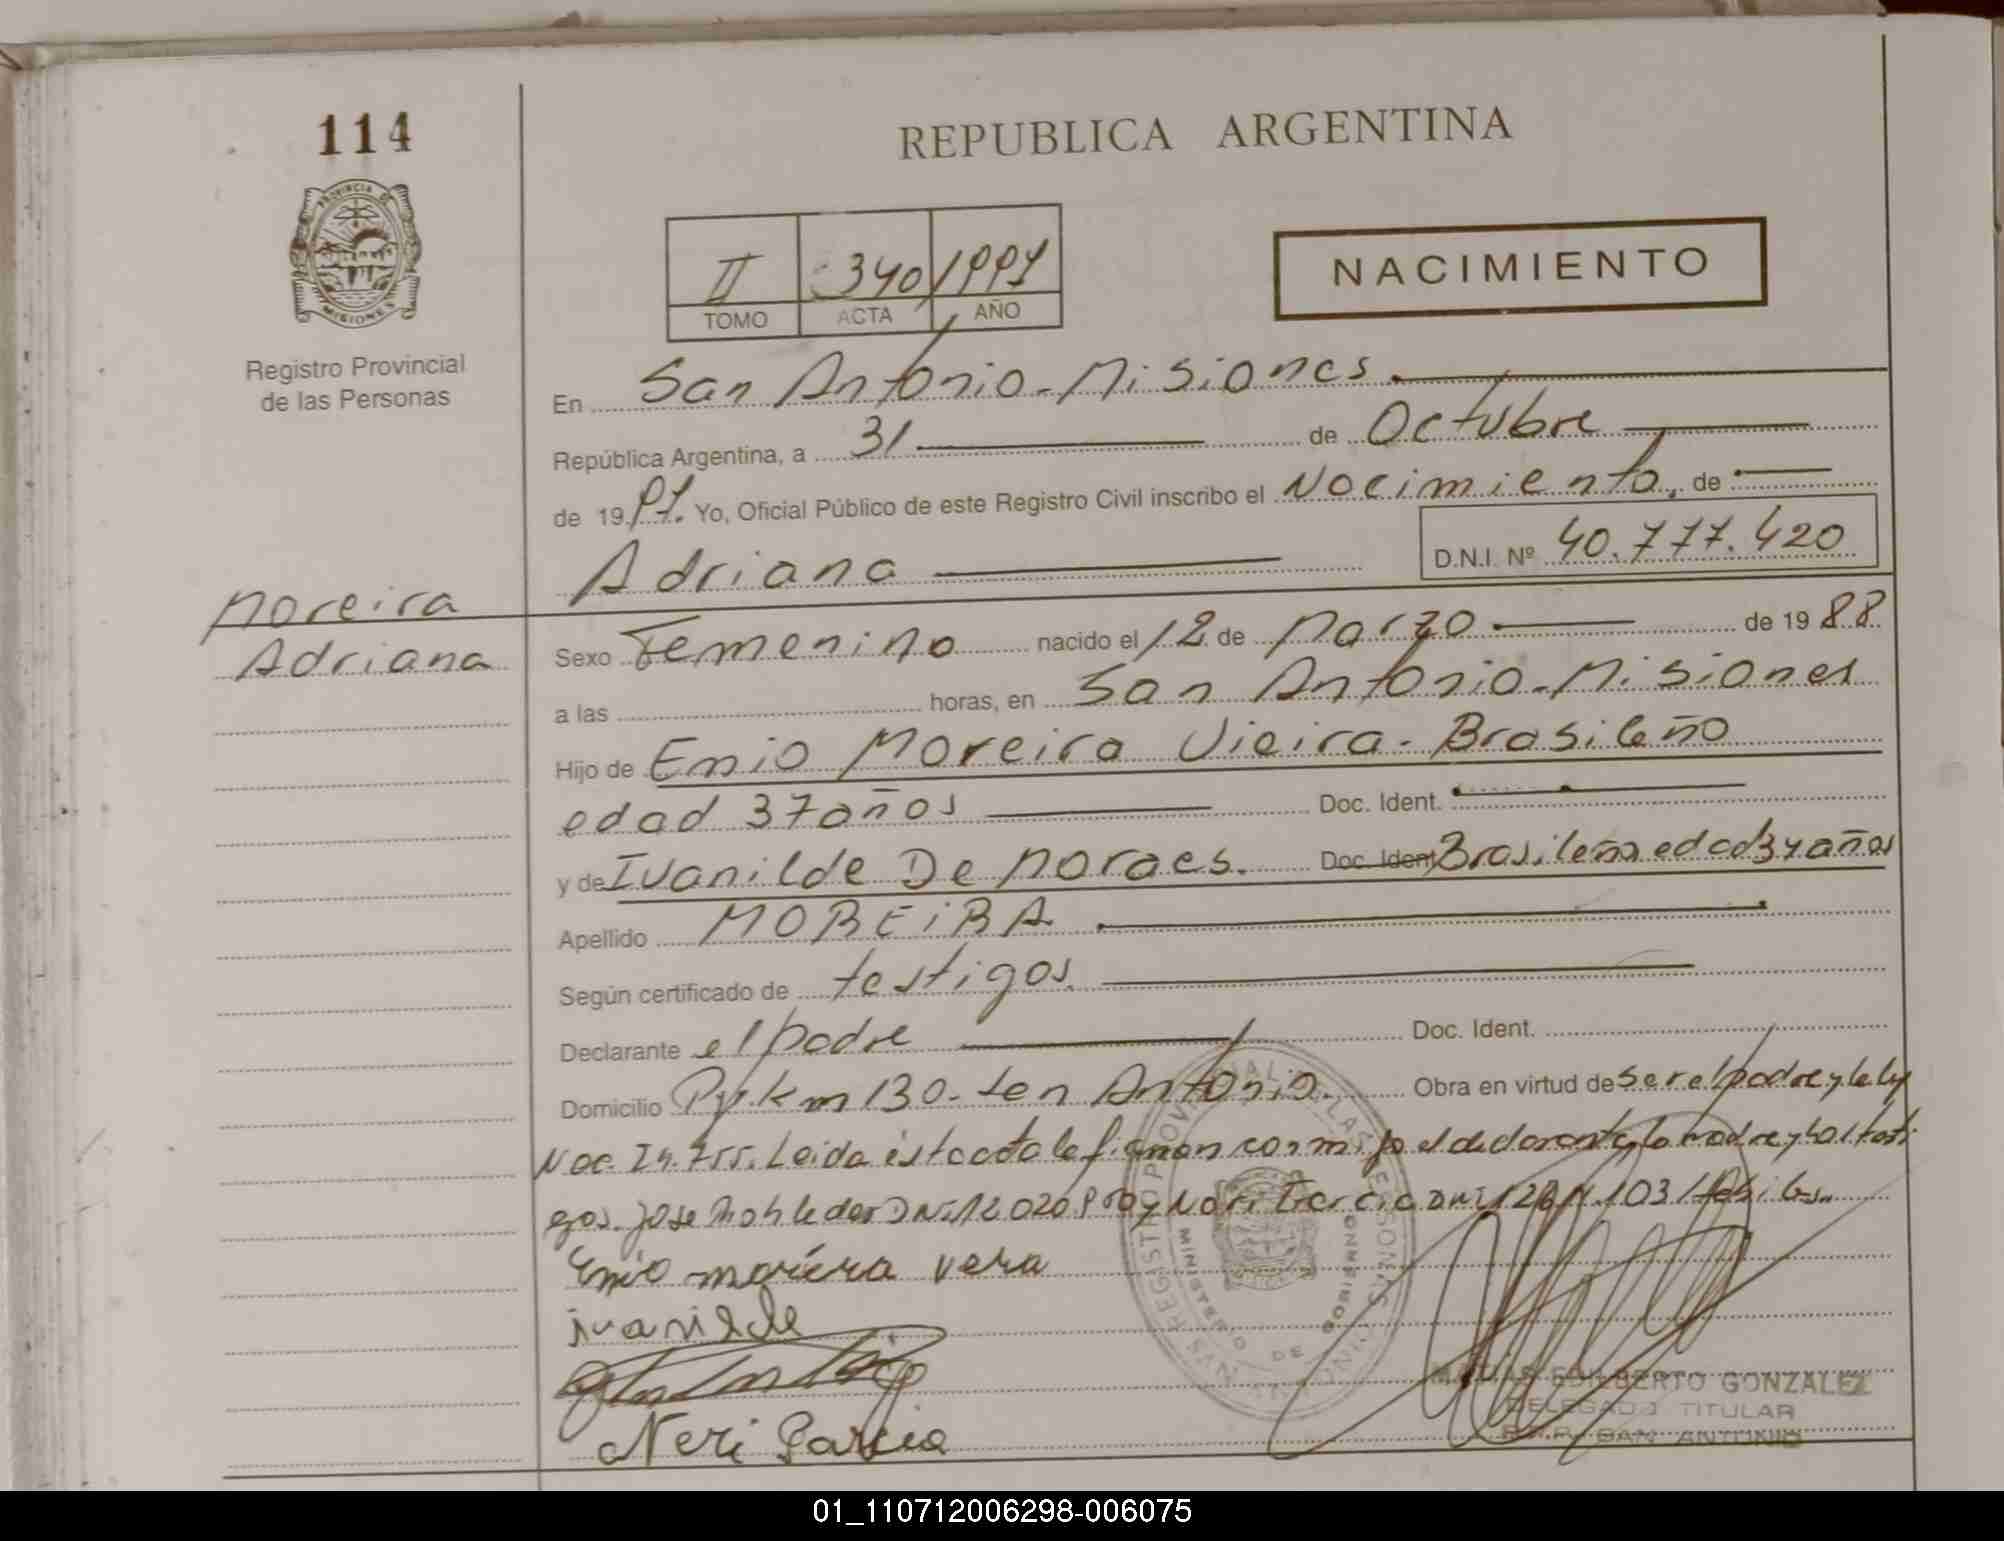 114
REPUBLICA ARGENTINA
PROVINCIA DE MISIONES
Registro Provincial
de las Personas
II 340 1991
TOMO ACTA AÑO
NACIMIENTO
En San Antonio - Misiones.
República Argentina, a 31 de Octubre
de 1991. Yo, Oficial Público de este Registro Civil inscribo el Nacimiento, de
Adriana D.N.I. Nº 40.777.420
Moreira
Adriana
Sexo Femenino nacido el 12 de Marzo de 1988
a las horas, en San Antonio - Misiones
Hijo de Enio Moreira Vieira - Brasileño
edad 37 años Doc. Ident.
y de Ivanilde De Moraes. Doc. Ident. Brasileña edad 34 años
Apellido MOREIRA
Según certificado de testigos.
Declarante el padre Doc. Ident.
Domicilio Pje. km 130 - Sen Antonio. Obra en virtud de ser el padre y la ley
Nac. 24.755. Leida esta acta la firman conmigo el declarante, la madre y los testi
gos. Jose DNI 12.020 y Neri Garcia DNI habiles.
Enio moréira vera
ivanilde
Neri Garcia
REGISTRO PROVINCIAL DE LAS PERSONAS
MINISTERIO DE GOBIERNO
MISIONES
MATIAS EDILBERTO GONZALEZ
DELEGADO TITULAR
R.P.P. SAN ANTONIO
01_110712006298-006075